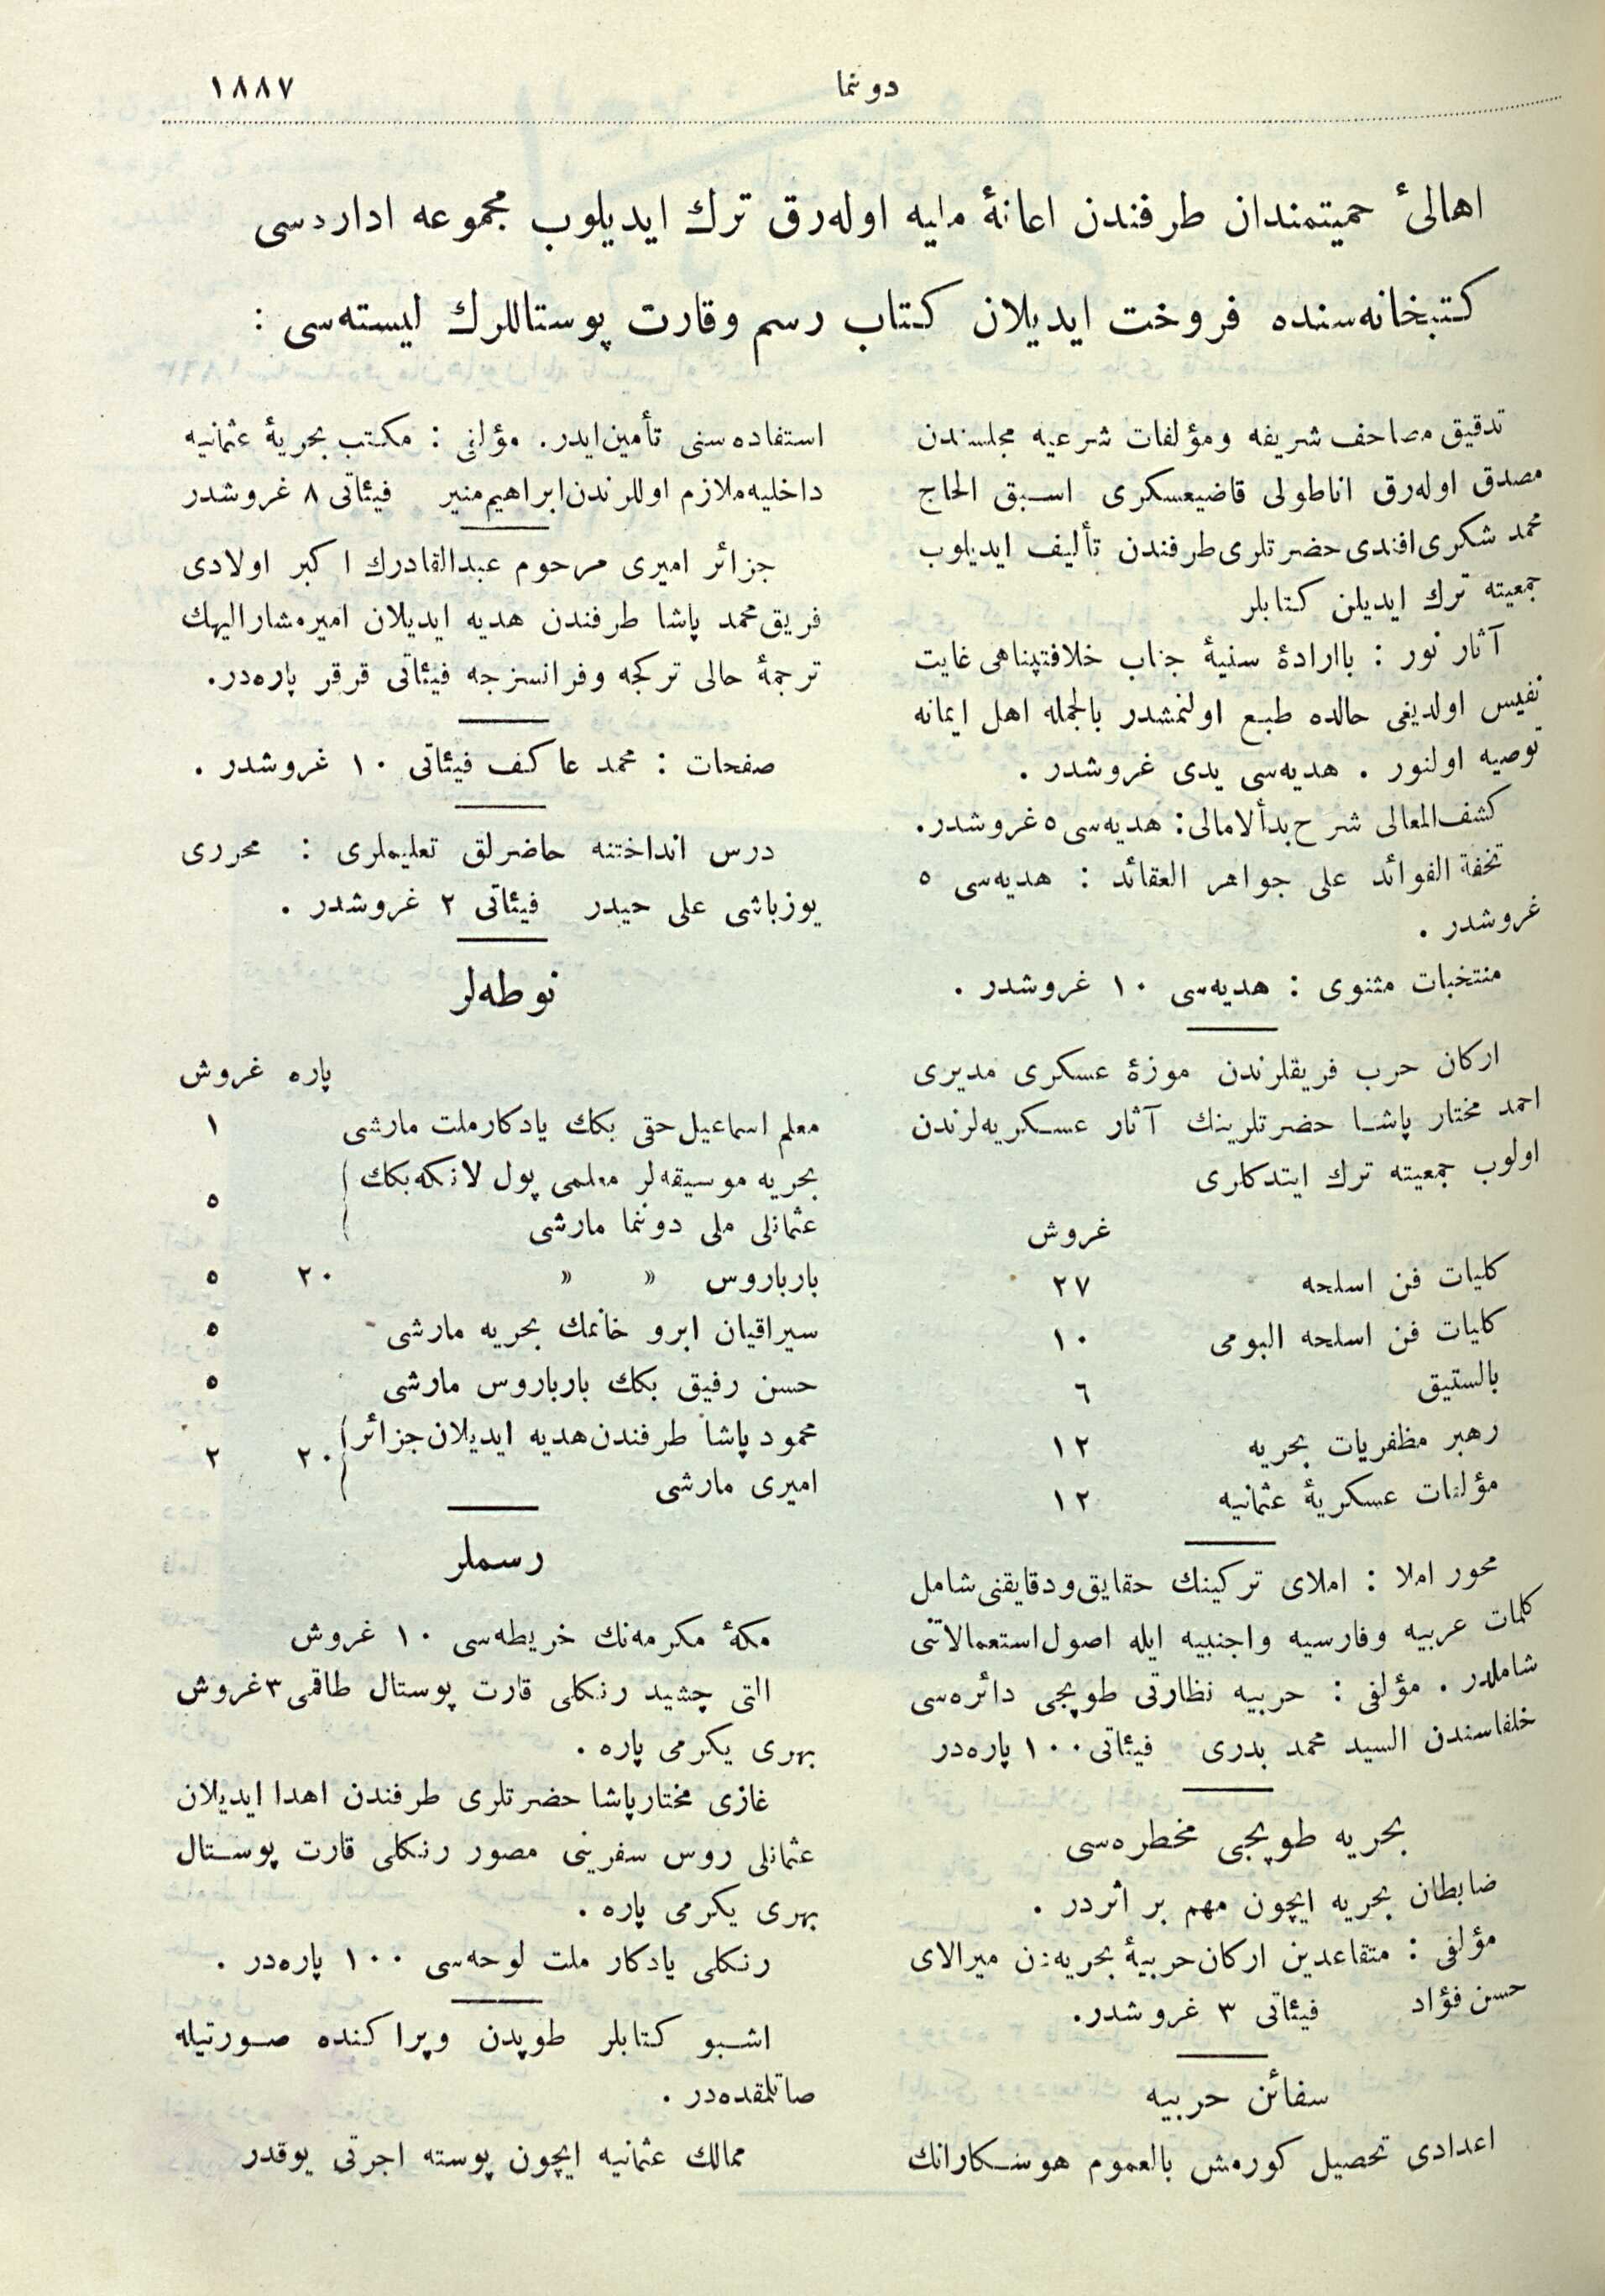 دونما
١٨٨٧
اهالئ حميتمندان طرفندن اعانۀ مليه اوله‌رق ترك ايديلوب مجموعه اداره‌سى
كتبخانه‌سنده فروخت ايديلان كتاب رسم وقارت پوستاللرك ليسته‌سى :
تدقيق مصاحف شريفه ومؤلفات شرعيه مجلسندن
مصدق اوله‌رق اناطولى قاضيعسكرى اسبق الحاج
محمد شكرى افندى حضرتلرى طرفندن تأليف ايديلوب
جمعيته ترك ايديلن كتابلر
آثار نور : باارادۀ سنيۀ جناب خلافتپناهى غايت
نفيس اولديغى حالده طبع اولنمشدر بالجمله اهل ايمانه
توصيه اولنور . هديه‌سى يدى غروشدر .
كشف‌المعالى شرح بدأ‌الامالى : هديه‌سى ٥ غروشدر.
تحفة الفوائد على جواهر العقائد : هديه‌سى ٥
غروشدر .
منتخبات مثنوى : هديه‌سى ١٠ غروشدر .
اركان حرب فريقلرندن موزۀ عسكرى مديرى
احمد مختار پاشا حضرتلرينك آثار عسكريه‌لرندن
اولوب جمعيته ترك ايتدكلرى
غروش
كليات فن اسلحه ٢٧
كليات فن اسلحه البومى ١٠
بالستيق ٦
رهبر مظفريات بحريه ١٢
مؤلفات عسكريۀ عثمانيه ١٢
محور املا : املاى تركينك حقايق ودقايقنى شامل
كلمات عربيه وفارسيه واجنبيه ايله اصول استعمالاتنى
شاملدر . مؤلفى : حربيه نظارتى طوپجى دائره‌سى
خلفاسندن السيد محمد بدرى فيئاتى ١٠٠ پاره‌در
بحريه طوپجى مخطره‌سى
ضابطان بحريه ايچون مهم بر اثردر .
مؤلفى : متقاعدين اركان حربيۀ بحريه‌دن ميرالاى
حسن فؤاد فيئاتى ٣ غروشدر.
سفائن حربيه
اعدادى تحصيل كورمش بالعموم هوسكارانك
استفاده‌سنى تأمين ايدر. مؤلفى : مكتب بحريۀ عثمانيه
داخليه ملازم اوللرندن ابراهيم منير فيئاتى ٨ غروشدر
جزائر اميرى مرحوم عبدالقادرك اكبر اولادى
فريق محمد پاشا طرفندن هديه ايديلان اميرمشاراليهك
ترجمۀ حالى تركجه وفرانسزجه فيئاتى قرقر پاره‌در.
صفحات : محمد عاكف فيئاتى ١٠ غروشدر .
درس انداختنه حاضرلق تعليملرى : محررى
يوزباشى على حيدر فيئاتى ٢ غروشدر .
نوطه‌لر
پاره غروش
معلم اسماعيل حقى بكك يادكار ملت مارشى ١
بحريه موسيقه‌لر معلمى پول لانكه بكك
عثمانلى ملى دوننما مارشى ٥
بارباروس » » ٢٠ ٥
سيراقيان ابرو خانمك بحريه مارشى ٥
حسن رفيق بكك بارباروس مارشى ٥
محمود پاشا طرفندن هديه ايديلان جزائر
اميرى مارشى ٢٠ ٢
رسملر
مكۀ مكرمه‌نك خريطه‌سى ١٠ غروش
التى چشيد رنكلى قارت پوستال طاقمى ٣ غروش
بهرى يكرمى پاره .
غازى مختار پاشا حضرتلرى طرفندن اهدا ايديلان
عثمانلى روس سفرينى مصور رنكلى قارت پوستال
بهرى يكرمى پاره .
رنكلى يادكار ملت لوحه‌سى ١٠٠ پاره‌در .
اشبو كتابلر طوپدن وپراكنده صورتيله
صاتلمقده‌در .
ممالك عثمانيه ايچون پوسته اجرتى يوقدر